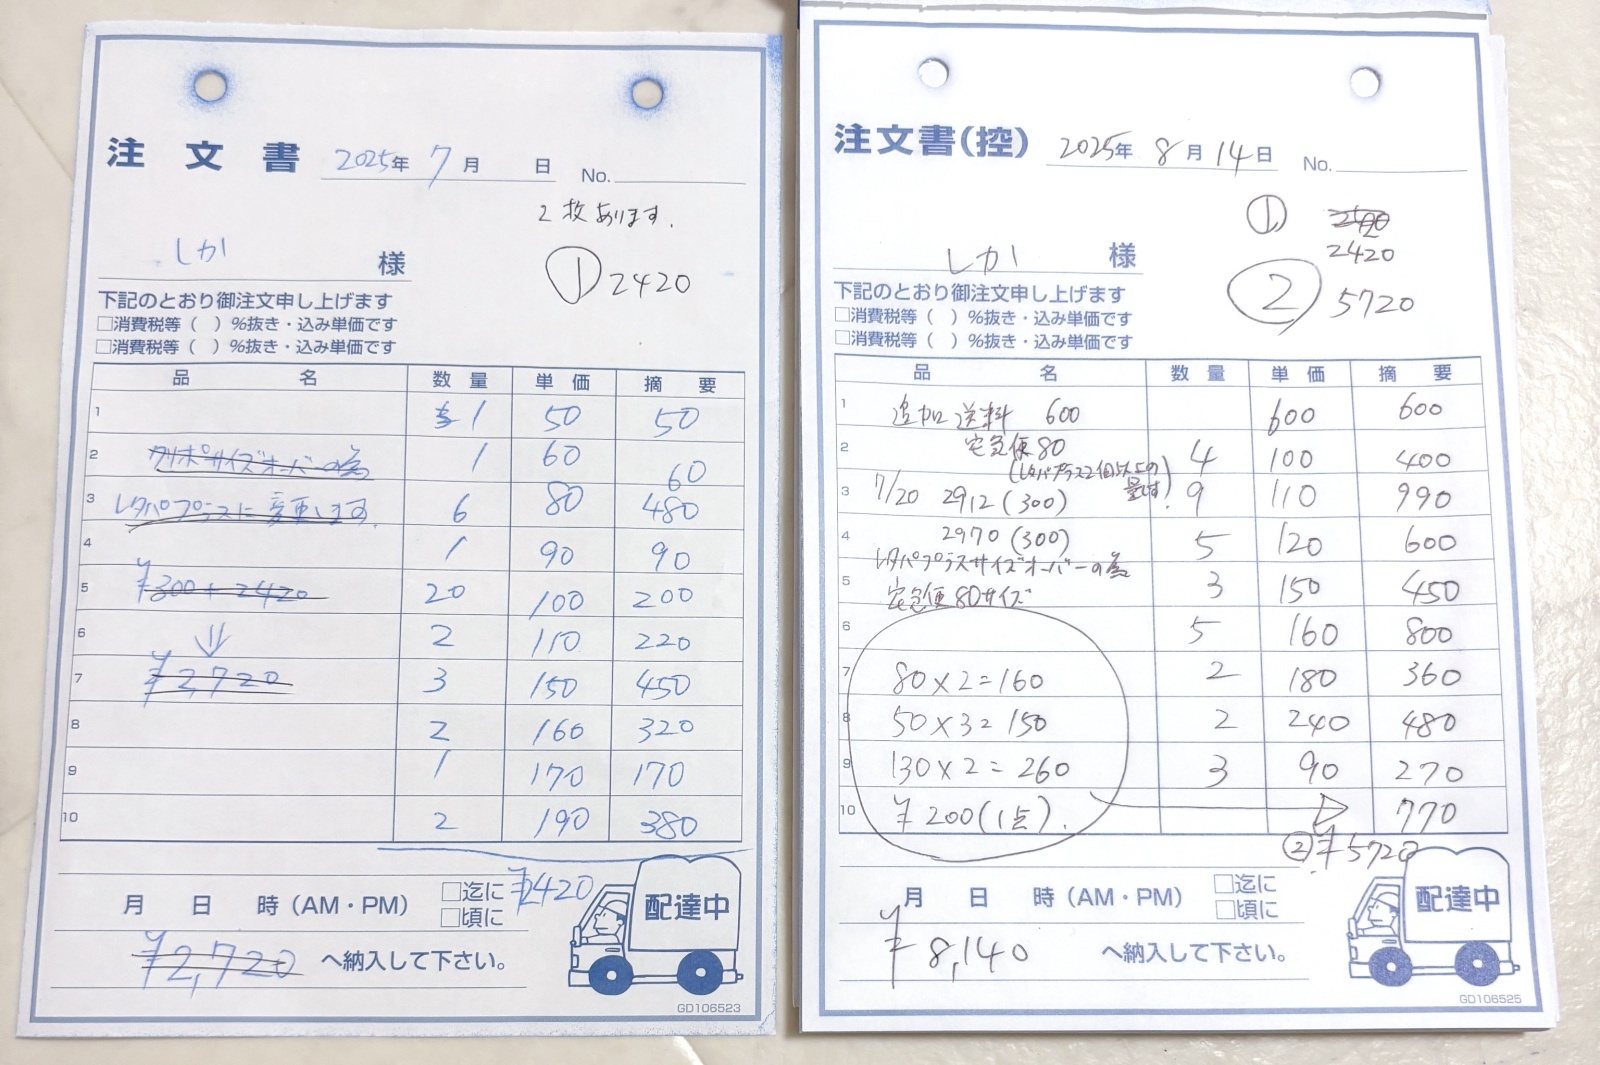 注文書 2025年 7月 日 No.
2枚あります.
しか 様
① 2420
下記のとおり御注文申し上げます
□消費税等( )%抜き・込み単価です
□消費税等( )%抜き・込み単価です
品名 数量 単価 摘要
1 1 50 50
2 クリポサイズオーバーの為 1 60 60
3 レタパプラスに変更します. 6 80 480
4 1 90 90
5 ¥300+2420 20 100 200
6 ⇓ 2 110 220
7 ¥2,720 3 150 450
8 2 160 320
9 1 170 170
10 2 190 380
¥2420
月 日 時(AM・PM) □迄に
□頃に
¥2,720 へ納入して下さい。
配達中
GD106523
注文書(控) 2025年 8月14日 No.
① 2420
しか 様
② 5720
下記のとおり御注文申し上げます
□消費税等( )%抜き・込み単価です
□消費税等( )%抜き・込み単価です
品名 数量 単価 摘要
1 追加送料 600 600 600
2 宅急便80 4 100 400
(レタパプラス2個以上の量です!
3 7/20 2912(300) 9 110 990
4 2970(300) 5 120 600
レタパプラスサイズオーバーの為
5 宅急便80サイズ 3 150 450
6 5 160 800
7 80×2=160 2 180 360
8 50×3=150 2 240 480
9 130×2=260 3 90 270
10 ¥200(1点). 770
②¥5720
月 日 時(AM・PM) □迄に
□頃に
¥8,140 へ納入して下さい。
配達中
GD106525